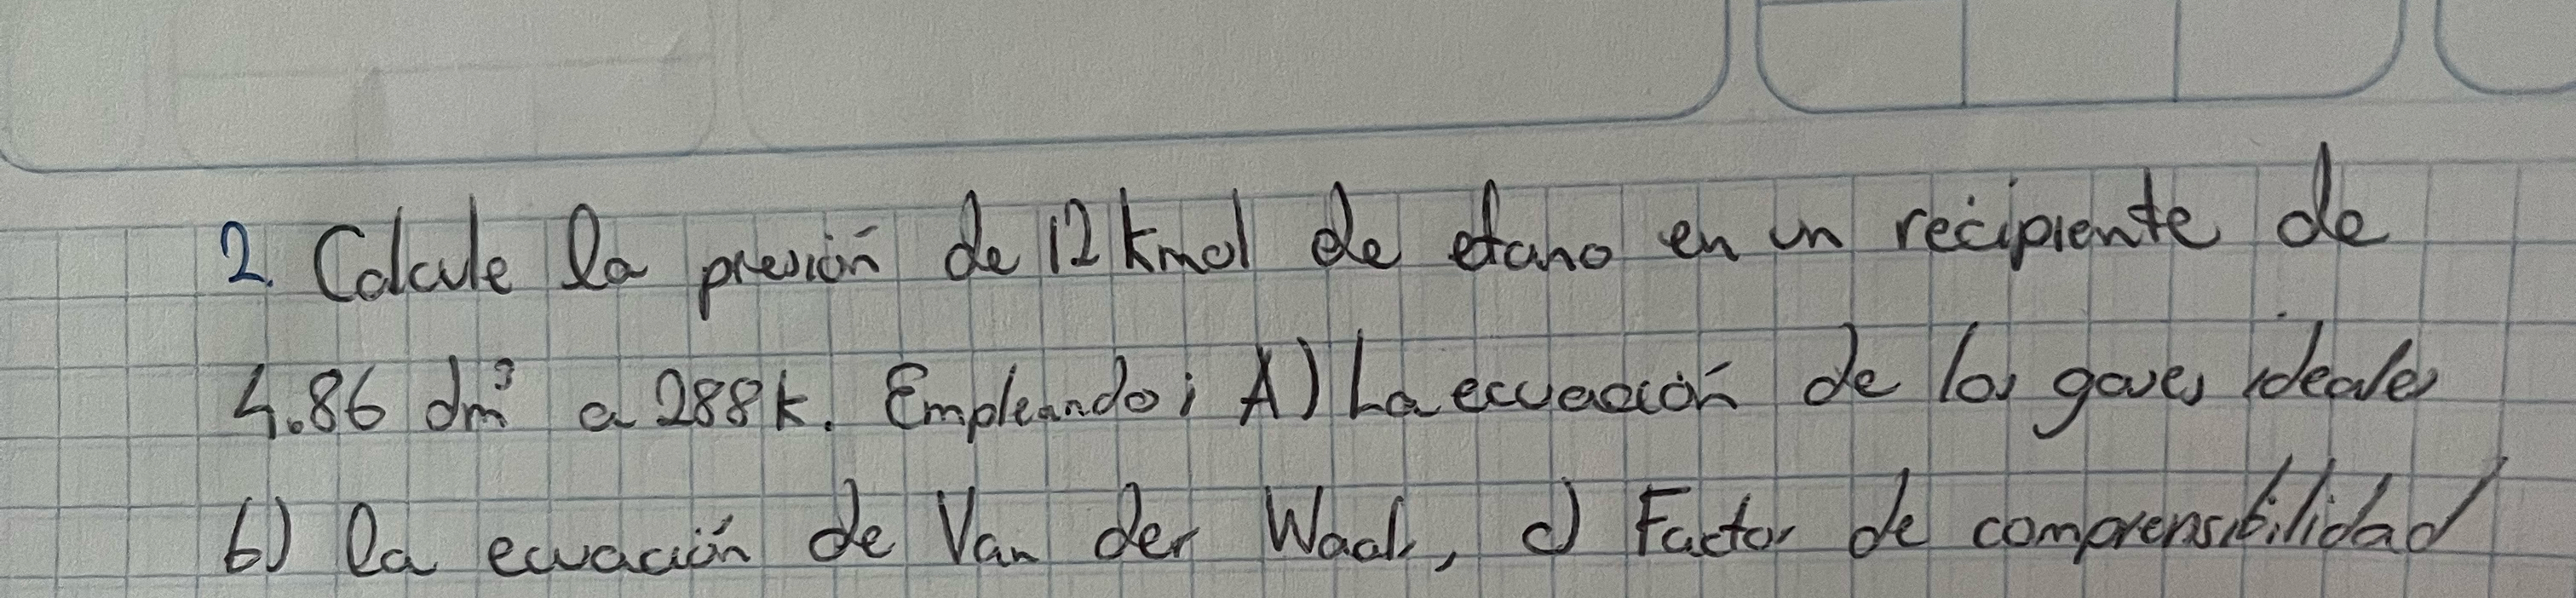 2. Calcule la presión de 12 kmol de etano en un recipiente de
4.86 dm³ a 288k. Empleando; A) La ecuación de los gases ideales
b) la ecuación de Van der Waals, c) Factor de comprensibilidad